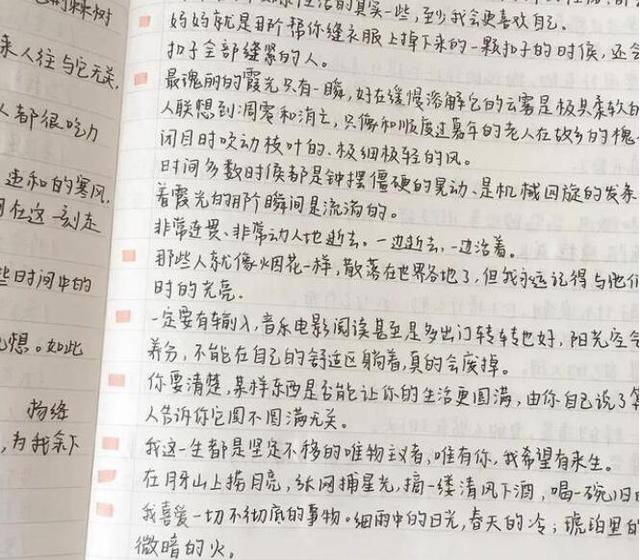 的棵树
来人往与它无关,
人都很吃力
违和的寒风,
在这一刻走
些时间中的
想。如此
杨绛
,为我余下
生活的真实一些,至少我会更喜欢自己。
妈妈就是那个帮你缝衣服上掉下来的一颗扣子的时候,还会
扣子全部缝紧的人。
最瑰丽的霞光只有一瞬,好在缓慢溶解它的云雾是极其柔软的
人联想到凋零和消亡,只像和顺度过暮年的老人在故乡的槐
闭目时吹动枝叶的、极细极轻的风。
时间多数时候都是钟摆僵硬的晃动、是机械回旋的发条
着霞光的那个瞬间是流淌的。
非常连贯、非常动人地逝去。一边逝去,一边活着。
那些人就像烟花一样,散落在世界各地了,但我永远记得与他们
时的光亮.
一定要有输入,音乐电影阅读甚至是多出门转转也好,阳光空
养分,不能在自己的舒适区躺着,真的会废掉。
你要清楚,某样东西是否能让你的生活更圆满,由你自己说了算
人告诉你它圆不圆满无关。
我这一生都是坚定不移的唯物主义者,唯有你,我希望有来生。
在月牙山上捞月亮,纵网捕星光,摘一缕清风下酒,喝一碗旧
我喜爱一切不彻底的事物。细雨中的日光,春天的冷;琥珀里的
微暗的火。